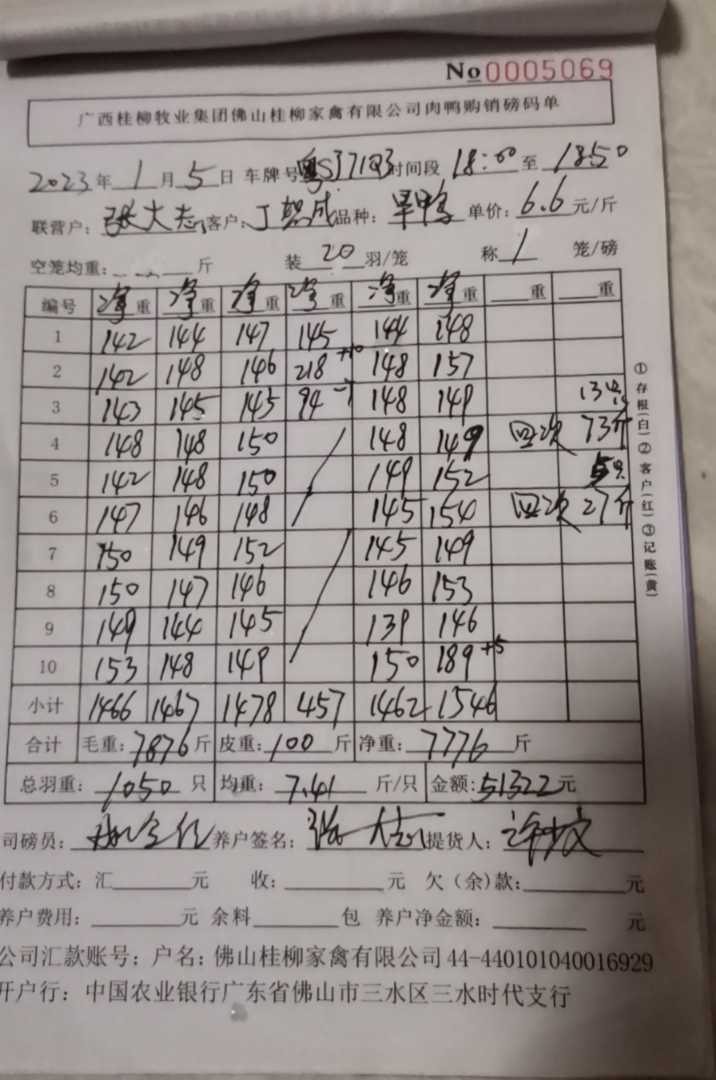 No 0005069
广西桂柳牧业集团佛山桂柳家禽有限公司肉鸭购销磅码单
2023年 1 月 5 日 车牌号 粤S371Q3 时间段 18:00 至 18:50
联营户: 张大志 客户: 丁贺成 品种: 旱鸭 单价: 6.6 元/斤
空笼均重: 斤 装 20 羽/笼 称 1 笼/磅
编号 净重 净重 净重 净重 净重 净重 重 重
1 142 144 147 145 144 148
2 142 148 146 218 +10 148 157
3 143 145 145 94 -7 148 149 13只
4 148 148 150 148 149 四次 73斤
5 142 148 150 149 152 5只
6 147 146 148 145 154 四次 27斤
7 150 149 152 145 149
8 150 147 146 146 153
9 149 144 145 139 146
10 153 148 149 150 189 +5
小计 1466 1467 1478 457 1462 1546
合计 毛重: 7876 斤 皮重: 100 斤 净重: 7776 斤
总羽重: 1050 只 均重: 7.41 斤/只 金额: 51322 元
司磅员: 养户签名: 张大志 提货人:
付款方式: 汇 元 收: 元 欠(余)款: 元
养户费用: 元 余料 包 养户净金额: 元
公司汇款账号: 户名: 佛山桂柳家禽有限公司 44-440101040016929
开户行: 中国农业银行广东省佛山市三水区三水时代支行
①存根(白)②客户(红)③记账(黄)